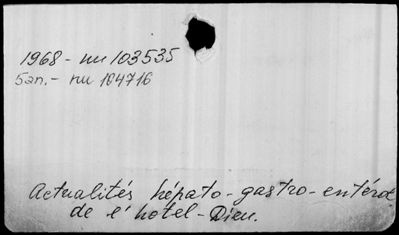 1968 - nu 103535
5an. - nu 104716
Actualités hépato-gastro-entérol
de l'hotel-Dieu.